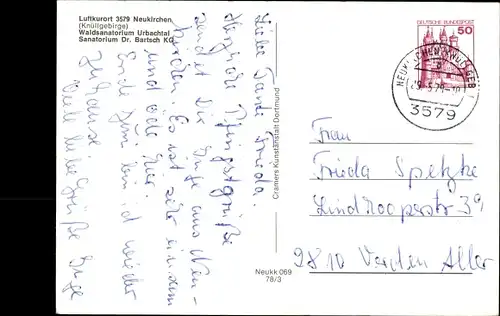 Luftkurort 3579 Neukirchen
(Knüllgebirge)
Waldsanatorium Urbachtal
Sanatorium Dr. Bartsch KG
Liebe Tante Frieda.
Herzliche Pfingstgrüße
sendet Dir Inge aus Neu-
kirchen. Es ist sehr einsam
und öde hier.
Ende Juni bin ich wieder
zuhause.
Viele liebe Grüße Inge
Cramers Kunstanstalt Dortmund
Neukk 069
78/3
DEUTSCHE BUNDESPOST
50
3579
Frau
Frieda Spetzke
Lindhooperstr 39
2810 Verden Aller